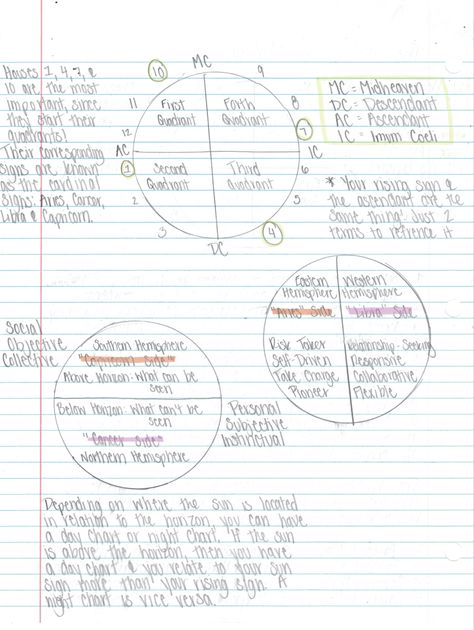 Houses 1, 4, 7, &
10 are the most
important, since
they start their
quadrants!
Their corresponding
signs are known
as the cardinal
signs: Aries, Cancer,
Libra & Capricorn.
MC
10
9
11
First
Quadrant
Forth
Quadrant
8
12
7
AC
IC
1
Second
Quadrant
Third
Quadrant
6
2
5
3
4
DC
MC = Midheaven
DC = Descendant
AC = Ascendant
IC = Imum Coeli
* Your rising sign &
the ascendant are the
same thing! Just 2
terms to refrence it
Eastern
Hemisphere
"Aries" Side
Risk Taker
Self-Driven
Take Charge
Pioneer
Western
Hemisphere
"Libra" Side
Relationship-Seeking
Responsive
Collaborative
Flexible
Social
Objective
Collective
Southern Hemisphere
"Capricorn Side"
Above Horizon-What can be
seen
Below Horizon-What can't be
seen
"Cancer Side"
Northern Hemisphere
Personal
Subjective
Instinctual
Depending on where the sun is located
in relation to the horizon, you can have
a day chart or night chart. If the sun
is above the horizon, then you have
a day chart & you relate to your sun
sign more than your rising sign. A
night chart is vice versa.